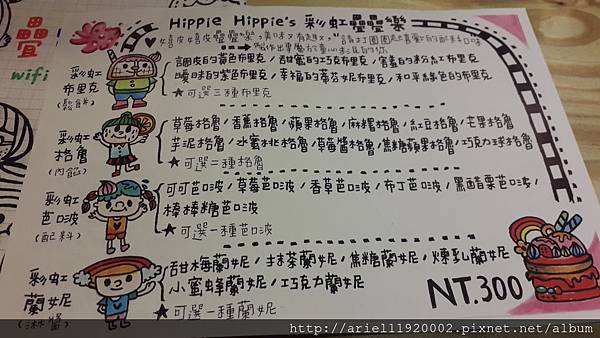 Hippie Hippie's 彩虹疊疊樂
疊
wifi
彩虹
布里克
(鬆餅)
調皮的黃色布里克/甜蜜的巧克布里克/害羞的粉紅布里克
曖昧的紫色布里克/幸福的蒂芬妮布里克/和平綠色的布里克
★可選三種布里克
彩虹
格魯
(內餡)
草莓格魯/香蕉格魯/蘋果格魯/麻糬格魯/紅豆格魯/芒果格魯
芋泥格魯/水蜜桃格魯/草莓醬格魯/焦糖蘋果格魯/巧克力球格魯
★可選二種格魯
彩虹
芭波
(配料)
可可芭波/草莓芭波/香草芭波/布丁芭波/黑醋栗芭波/
棒棒糖芭波
★可選一種芭波
彩虹
蘭妮
(淋醬)
甜梅蘭妮/抹茶蘭妮/焦糖蘭妮/煉乳蘭妮
小蜜蜂蘭妮/巧克力蘭妮
★可選一種蘭妮
NT.300
http://ariel11920002.pixnet.net/album